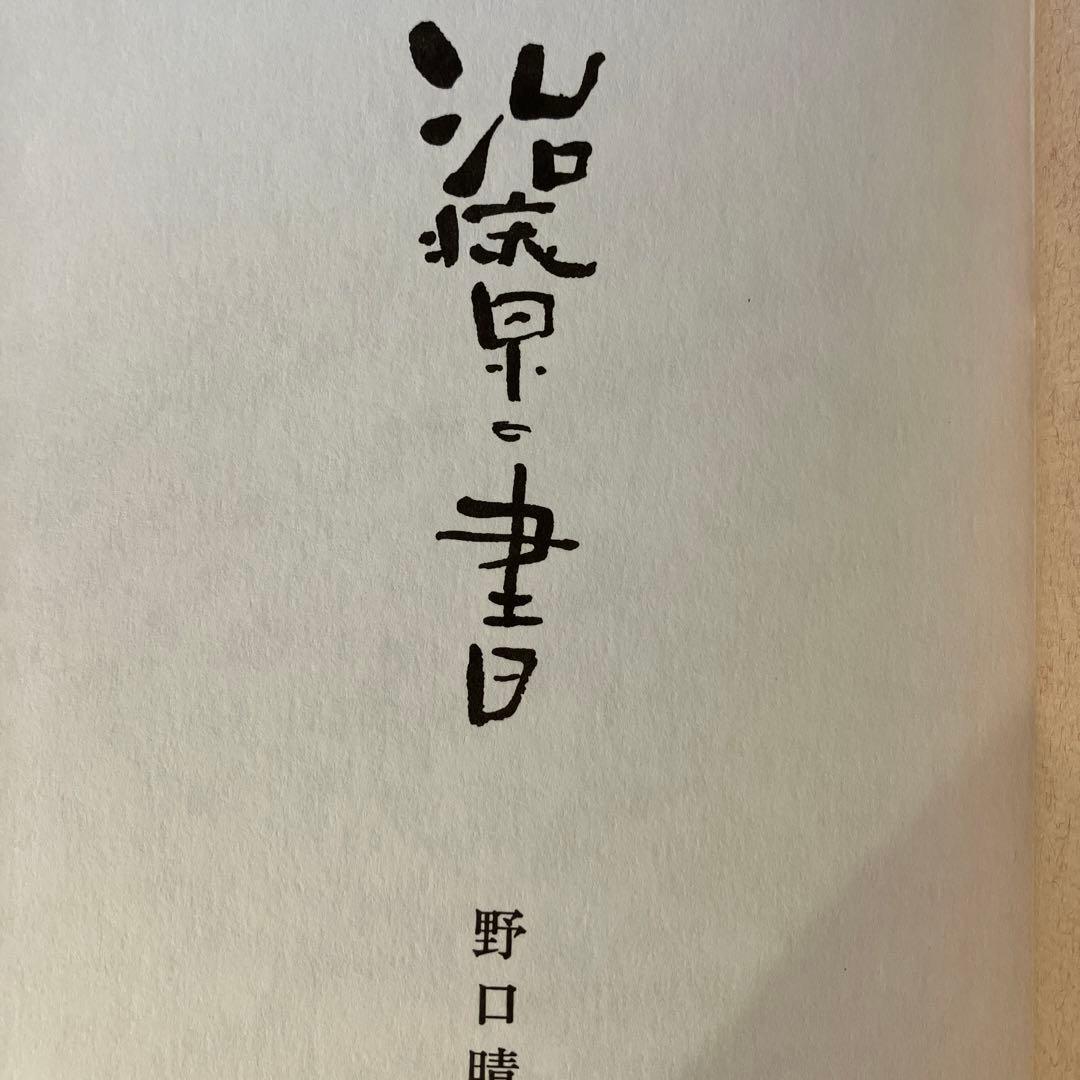 治療の書
野口晴